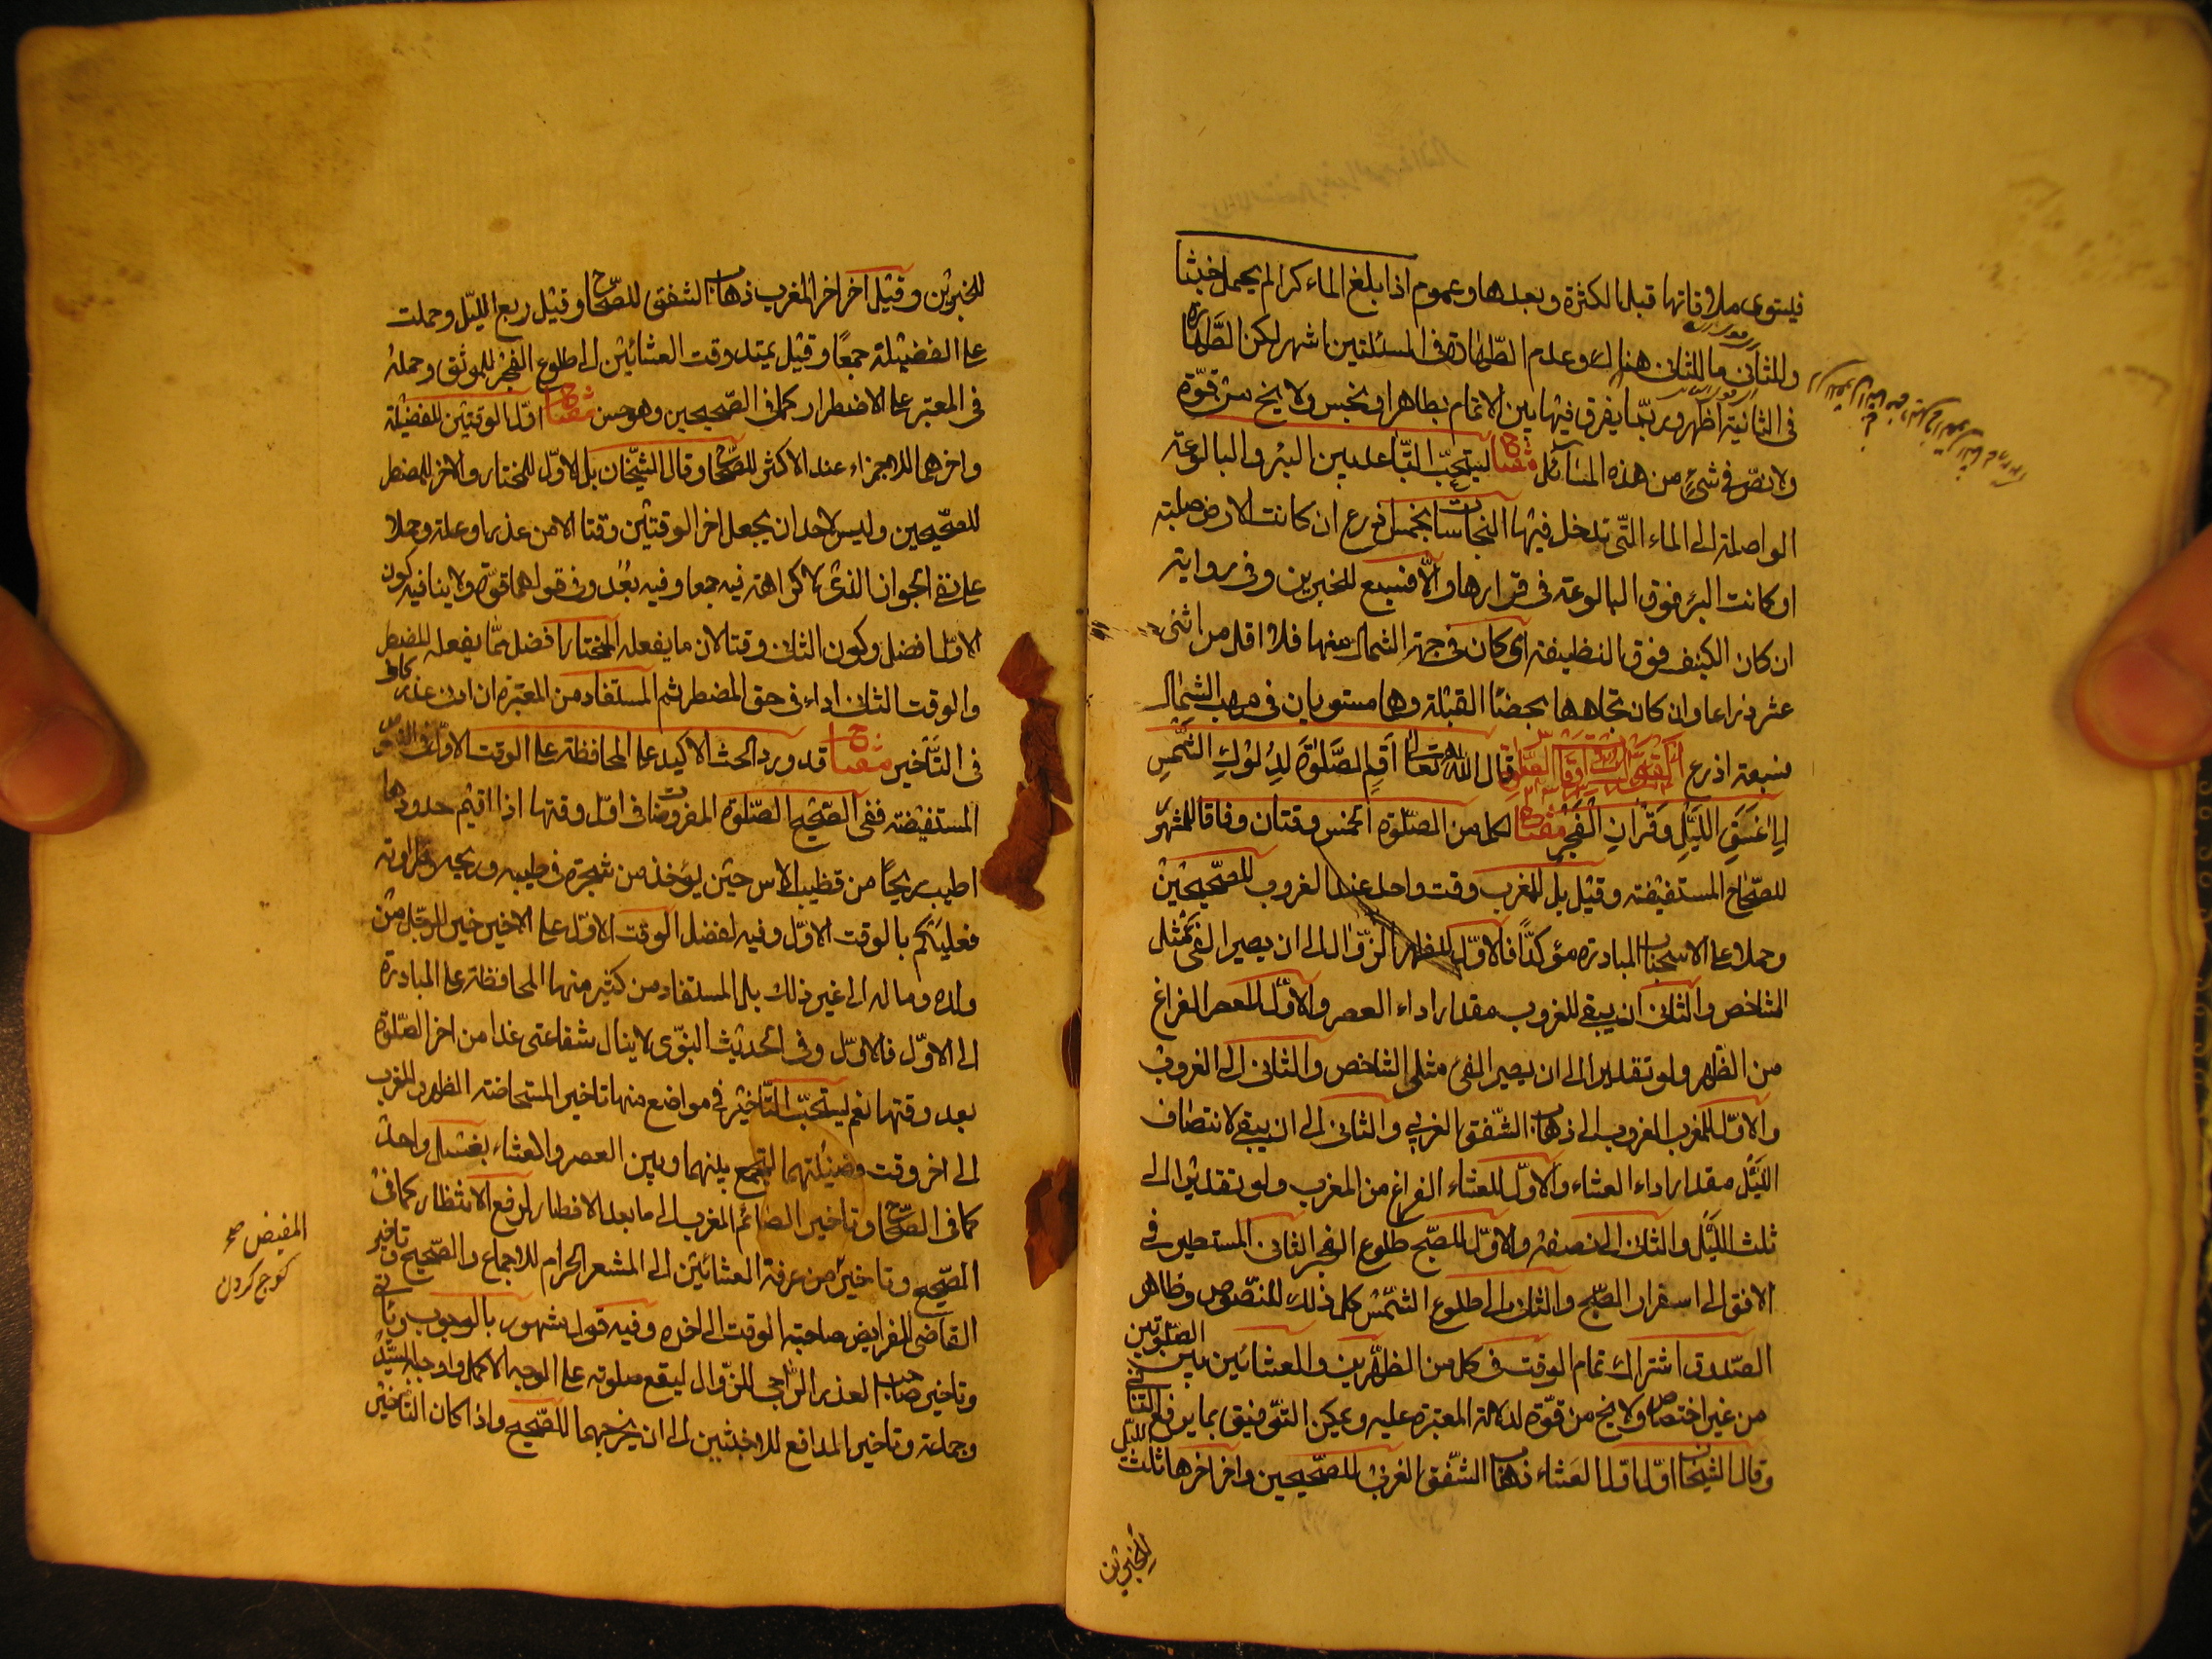 فيستوى ملاقاتها قبل الكثرة وبعدها وعموم اذا بلغ الماء كرا لم يحمل خبثا
وللثانى ما للثانى هناك وعدم الطهارة فى المسئلتين اشهر لكن الطهارة
فى الثانية اظهر وربما يفرق فيها بين الاتمام بطاهر او نجس ولا يخ من قوة
ولا نص فى شئ من هذه المسائل مفتاح يستحب التباعد بين البئر والبالوعة
الواصلة الى الماء التى تدخل فيها النجاسات بخمس اذرع ان كانت الارض صلبة
او كانت البئر فوق البالوعة فى قرارها والا فسبع للخبرين وفى رواية
ان كان الكنيف فوق النظيفة اى كان فى جهة الشمال منها فلا اقل من اثنى
عشر ذراعا وان كان تجاهها بحضا القبلة وهما مستويان فى مهب الشمال
فسبعة اذرع قال الله تعالى اَقِمِ الصَّلٰوةَ لِدُلُوكِ الشَّمْسِ
اِلٰى غَسَقِ اللَّيْلِ وَقُرْاٰنَ الْفَجْرِ مفتاح لكل من الصلوة الخمس وقتان وفاقا للمشهر
للصحاح المستفيضة وقيل بل للمغرب وقت واحد عند الغروب للصحيحين
وحملا على الاستحباب المبادرة مؤكدا فالاول للظهر الزوال الى ان يصير الفئ كمثل
الشاخص والثانى ان يبقى للغروب مقدار اداء العصر والاول للعصر الفراغ
من الظهر ولو تقديرا الى ان يصير الفئ مثلى الشاخص والثانى الى الغروب
والاول للمغرب الغروب الى ذهاب الشفق الغربي والثانى الى ان يبقى لانتصاف
الليل مقدار اداء العشاء والاول للعشاء الفراغ من المغرب ولو تقديرا الى
ثلث الليل والثانى الى نصفه والاول للصبح طلوع الفجر الثانى المستطير فى
الافق الى اسفرار الصبح والثانى الى طلوع الشمس كل ذلك للنصوص وظاهر
الصدوق اشتراك تمام الوقت فى كل من الظهرين والعشائين بين الصلوتين
من غير اختصاص ولا يخ من قوة لدلالة المعتبرة عليه ويمكن التوفيق بما يرفع التنافى
وقال الشيخان اول العشاء ذهاب الشفق الغربى للصحيحين واخر اخرها ثلث الليل
للخبرين
للخبرين وقيل اخر اخر المغرب ذهاب الشفق للصحاح وقيل ربع الليل وحملت
على الفضيلة جمعا وقيل يمتد وقت العشائين الى طلوع الفجر للموثق وحمله
فى المعتبر على الاضطرار كما فى الصحيحين وهو حسن مفتاح اول الوقتين للفضيلة
واخرهما للاجزاء عند الاكثر للصحاح وقال الشيخان بل الاول للمختار والاخر للمضطر
للصحيحين وليس لاحد ان يجعل اخر الوقتين وقتا الا من عذر او علة وحملا
على نفى الجواز الذى لا كراهة فيه جمعا وفيه بُعْد وفى قولهما قوة ولا ينافيه كون
الاول افضل وكون الثانى وقتا لان ما يفعله المختار افضل مما يفعله المضطر
والوقت الثانى اداء فى حق المضطر ثم المستفاد من المعتبرة ان ادنى عذر كاف
فى التاخير مفتاح قد ورد الحث الاكيد على المحافظة على الوقت الاول فى النصوص
المستفيضة ففى الصحيح الصلوة المفروضات فى اول وقتها اذا اقيم حدودها
اطيب ريحا من قظيب الاس حين يؤخذ من شجره فى طيبه وريحه وطراوته
فعليكم بالوقت الاول وفيه لفضل الوقت الاول على الاخير خير للرجل من
ولده وماله الى غير ذلك بل المستفاد من كثير منها المحافظة على المبادرة
الى الاول فالاول وفى الحديث النبوى لا ينال شفاعتى غدا من اخر الصلوة
بعد وقتها نعم يستحب التاخير فى مواضع منها تاخير المستحاضة الظهر والمغرب
الى اخر وقت فضيلتهما للجمع بينهما وبين العصر والعشاء بغسل واحد
كما فى الصحاح وتاخير الصائم المغرب الى ما بعد الافطار لرفع الانتظار كما فى
الصحيح وتاخير من عرفة العشائين الى المشعر الحرام للاجماع والصحيح وتاخير
القاضى الفرايض صاحبة الوقت الى اخره وفيه قول مشهور بالوجوب وياتى
وتاخير صاحب العذر الراجى للزوال ليقع صلوته على الوجه الاكمل واوجبه السيد
وجماعة وتاخير المدافع للاخبثين الى ان يخرجهما للصحيح واذا كان التاخير
المفيض صح
كوچ كردن